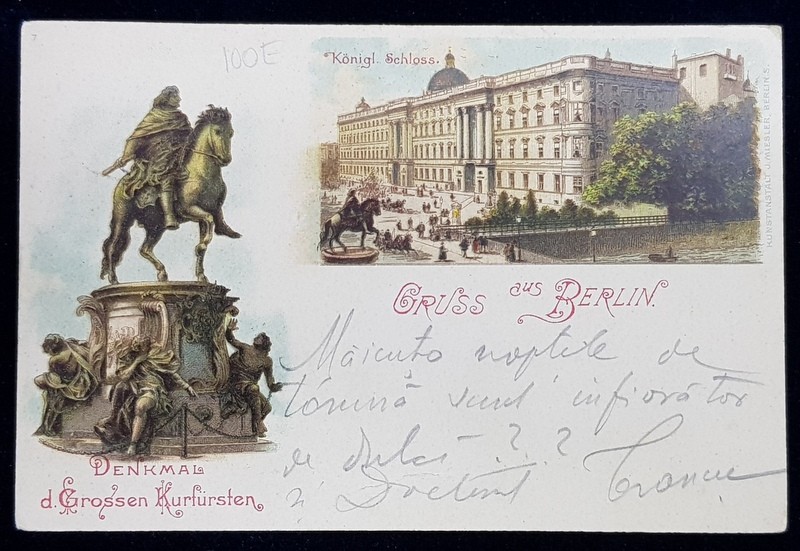 100E
Königl. Schloss.
KUNSTANSTALT J. MIESLER, BERLIN. S.
GRUSS aus BERLIN.
Măicuța nopțile de
toamnă sunt înfiorător
de dulci ? ?
și Doctorul
DENKMAL
d. Grossen Kurfürsten.